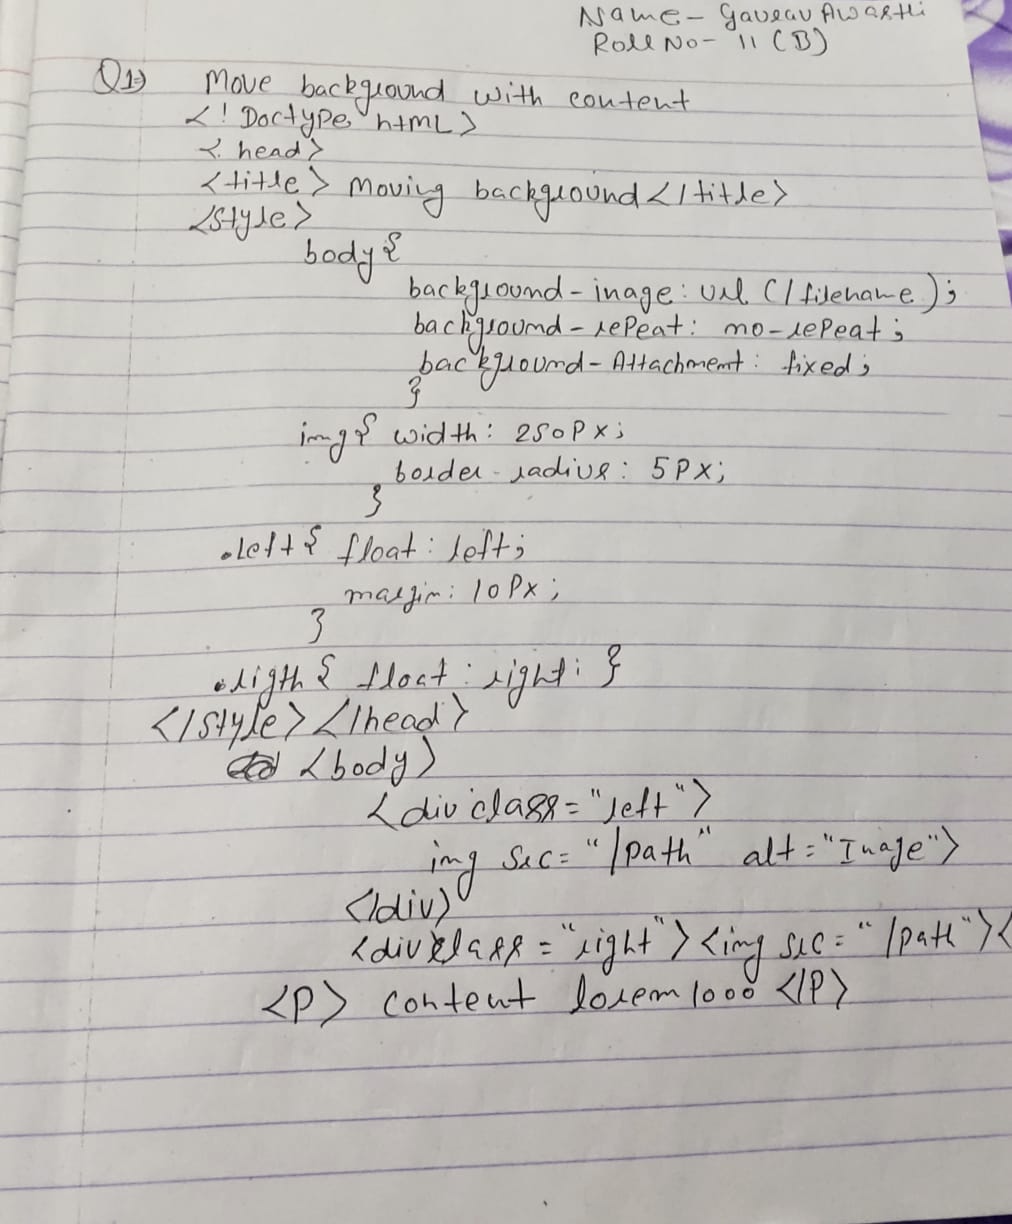 Name - Gaurav Awasthi
Roll No - 11 (B)
Q1→ Move background with content
<! Doctype html>
<head>
<title> Moving background </title>
<style>
body {
background-inage: url (/filename);
background-repeat: no-repeat;
background-Attachment: fixed;
}
img { width: 250px;
border-radius: 5px;
}
.left { float: left;
margin: 10px;
}
.rigth { float: right; }
</style> </head>
<body>
<div class="left">
img src="/path" alt="Inage">
</div>
<div class="right"> <img src="/path"><
<p> content lorem 1000 </p>